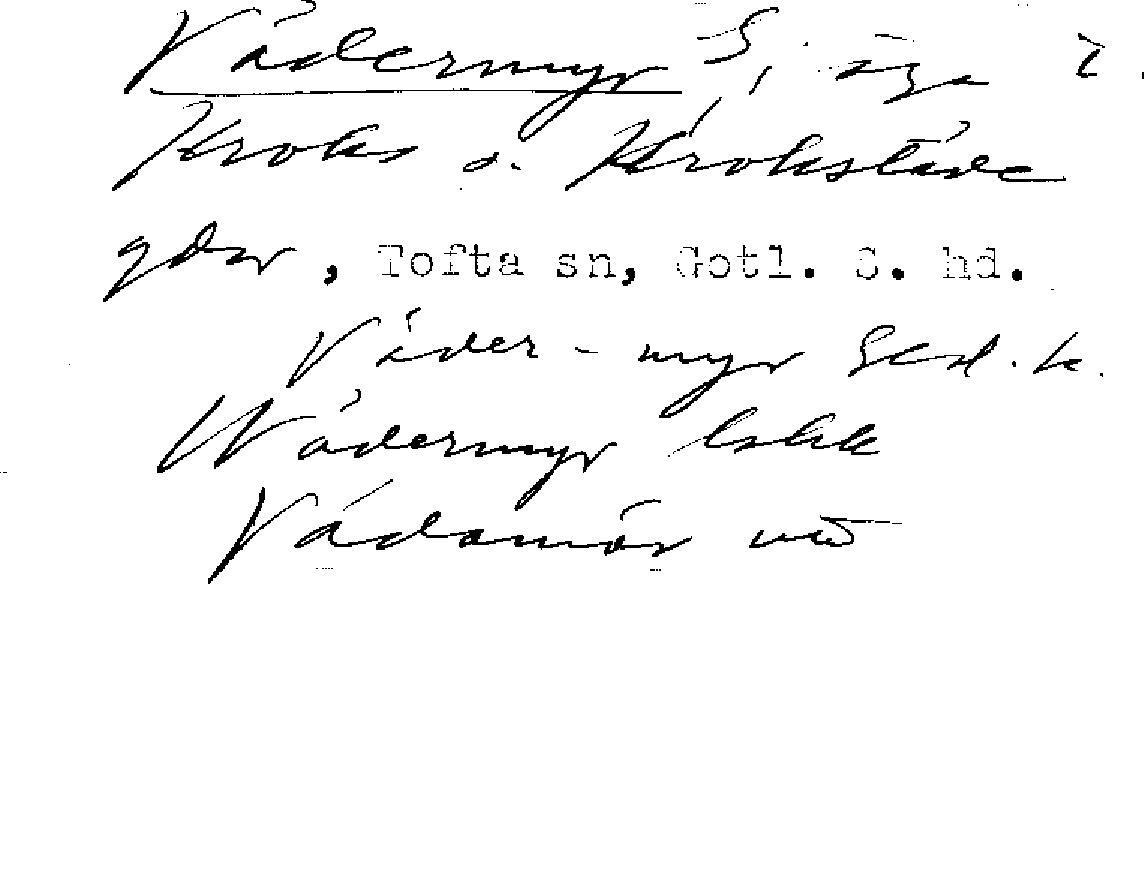 Vädermyr S, äga i
Kroks o. Krokstäde
gdar, Tofta sn, Gotl. S. hd.
Väder-myr Gld. k.
Wädermyr lskk
Vädamör